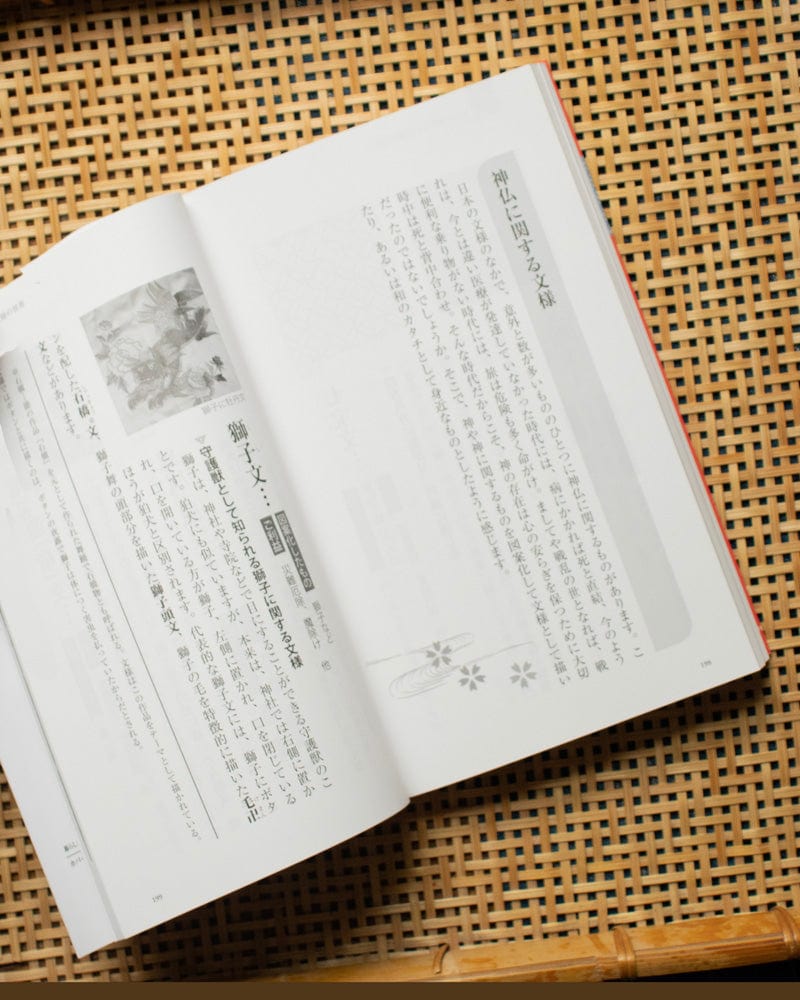 神仏に関する文様
日本の文様のなかで、意外と数が多いもののひとつに神仏に関するものがあります。こ
れは、今とは違い医療が発達していなかった時代には、病にかかれば死と直結、今のよう
に便利な乗り物がない時代には、旅は危険も多く命がけ。ましてや戦乱の世となれば、戦
時中は死と背中合わせ。そんな時代だからこそ、神の存在は心の安らぎを保つために大切
だったのではないでしょうか。そこで、神や神に関するものを図案化して文様として描い
たり、あるいは和のカタチとして身近なものとしたように感じます。
198
獅子文…
図案化したもの
獅子など
他
ご利益
災難厄除、魔除け
守護獣として知られる獅子に関する文様
獅子は、神社や寺院などで目にすることができる守護獣のこ
とです。狛犬にも似ていますが、本来は、神社では右側に置か
れ、口を開いている方が獅子、左側に置かれ、口を閉じている
ほうが狛犬と区別されます。代表的な獅子文には、獅子にボタ
ンを配した石橋文、獅子舞の頭部分を描いた獅子頭文、獅子の毛を特徴的に描いた毛卍
文などがあります。
獅子に牡丹文
199